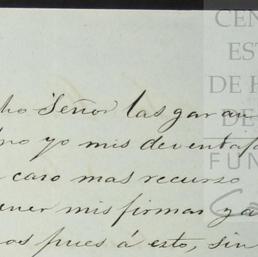 CEN
ES
DE H
DE
FUN
ho Señor las garan
no yo mis deventa
caso mas recurso
ener mis firmas ga
os pues á esto, sin